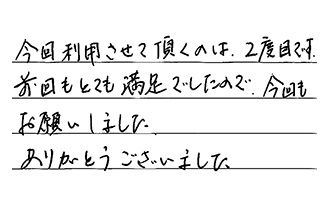 今回利用させて頂くのは、2度目です.
前回もとても満足でしたので、今回も
お願いしました.
ありがとうございました